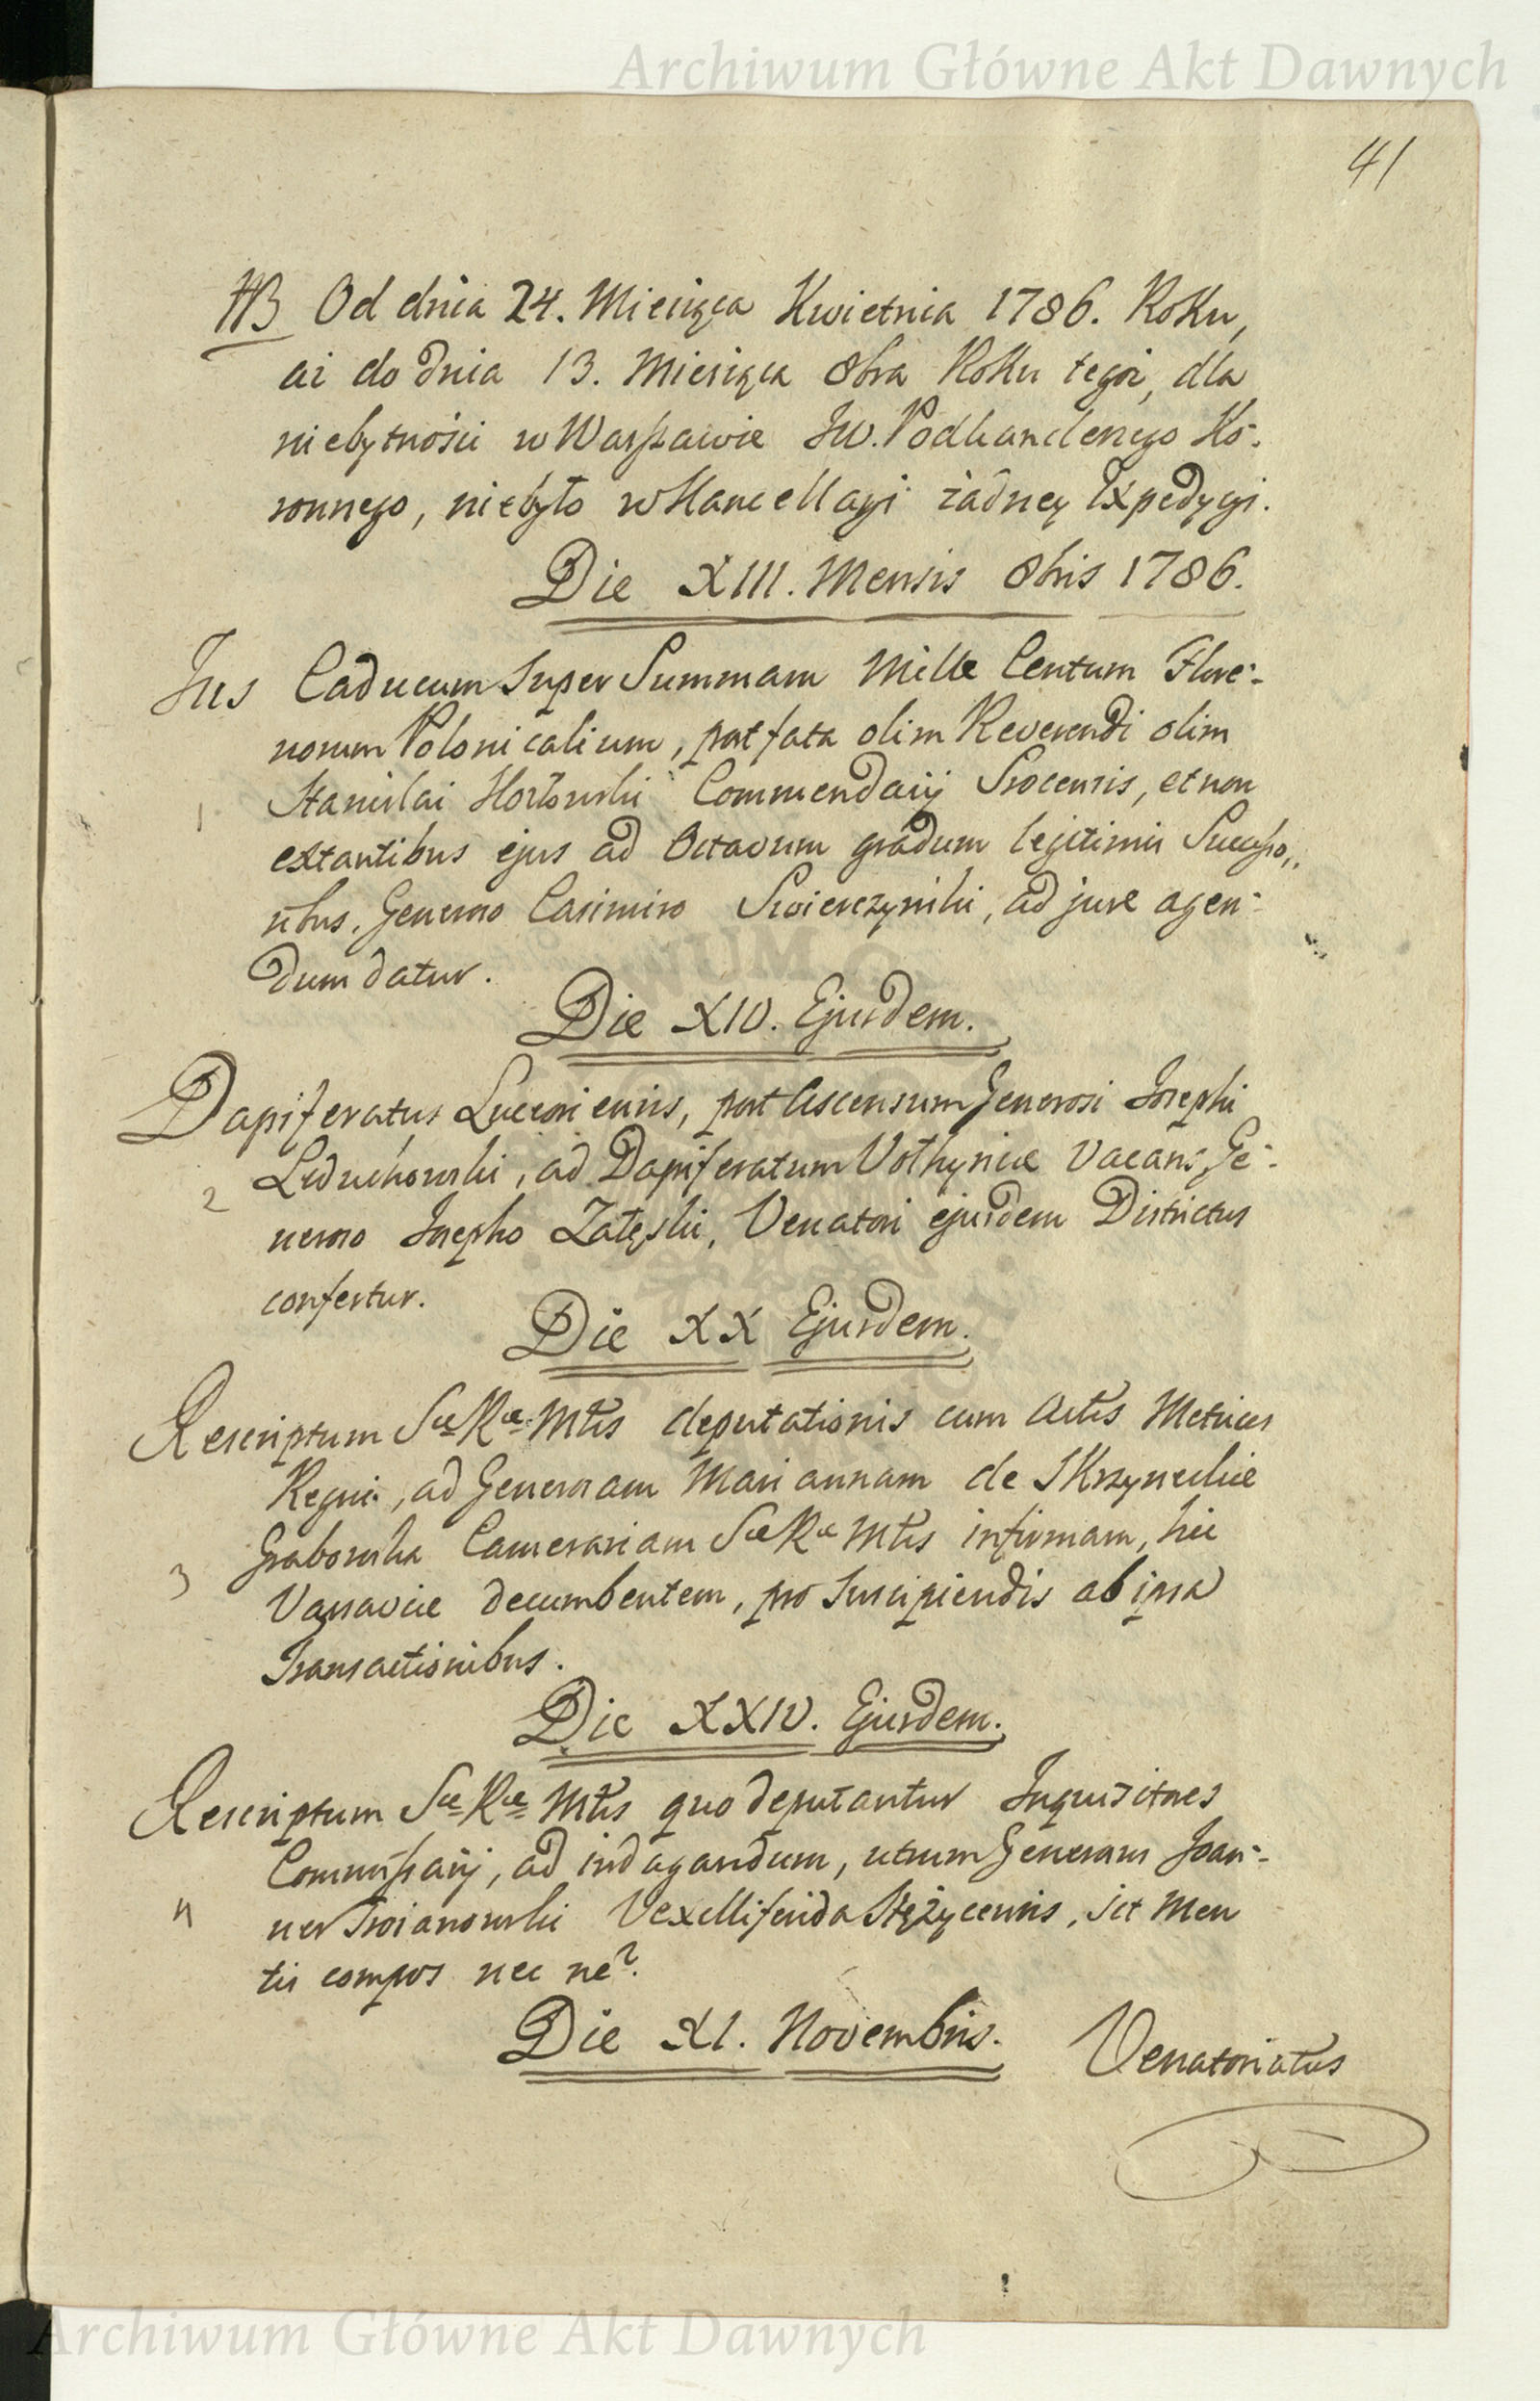 Archiwum Główne Akt Dawnych
41
NB Od dnia 24. Miesiąca Kwietnia 1786. Roku,
aż do dnia 13. Miesiąca 8bra Roku tegoż, dla
niebytności w Warszawie JW. Podkanclerzego Ko-
ronnego, niebyło w Kancellaryi żadney Expedycyi.
Die XIII. Mensis 8bris 1786.
Jus Caducum super Summam Mille Centum Flore-
norum Polonicalium, post fata olim Reverendi olim
1 Stanislai Commendarij Srocensis, et non
extantibus ejus ad Octavum gradum legitimis Successo,,
ribus, Generoso Casimiro Swierczynski, ad jure agen-
dum datur.
Die XIV. Ejusdem.
Dapiferatus Luceoriensis, post Ascensum Generosi Josephi
2 Leduchowski, ad Dapiferatum Volhyniæ vacans, Ge-
neroso Josepho Załęski, Venatori ejusdem Districtus
confertur.
Die XX Ejusdem.
Rescriptum Sæ Ræ Mtis deputationis cum Actis Metrices
Regni, ad Generosam Mariannam de Skrzyneckie
3 Grabowska Camerariam Sæ Ræ Mtis infirmam, hic
Varsaviæ decumbentem, pro suscipiendis ab ipsa
Transactionibus.
Die XXIV. Ejusdem.
Rescriptum Sæ Ræ Mtis quo deputantur Inquisitores
Commissarij, ad indagandum, utrum Generosus Joan-
4 nes Trojanowski Vexilliferida Stężycensis, sit Men
tis compos nec ne?
Die XI. Novembris.
Venatoriatus
Archiwum Główne Akt Dawnych